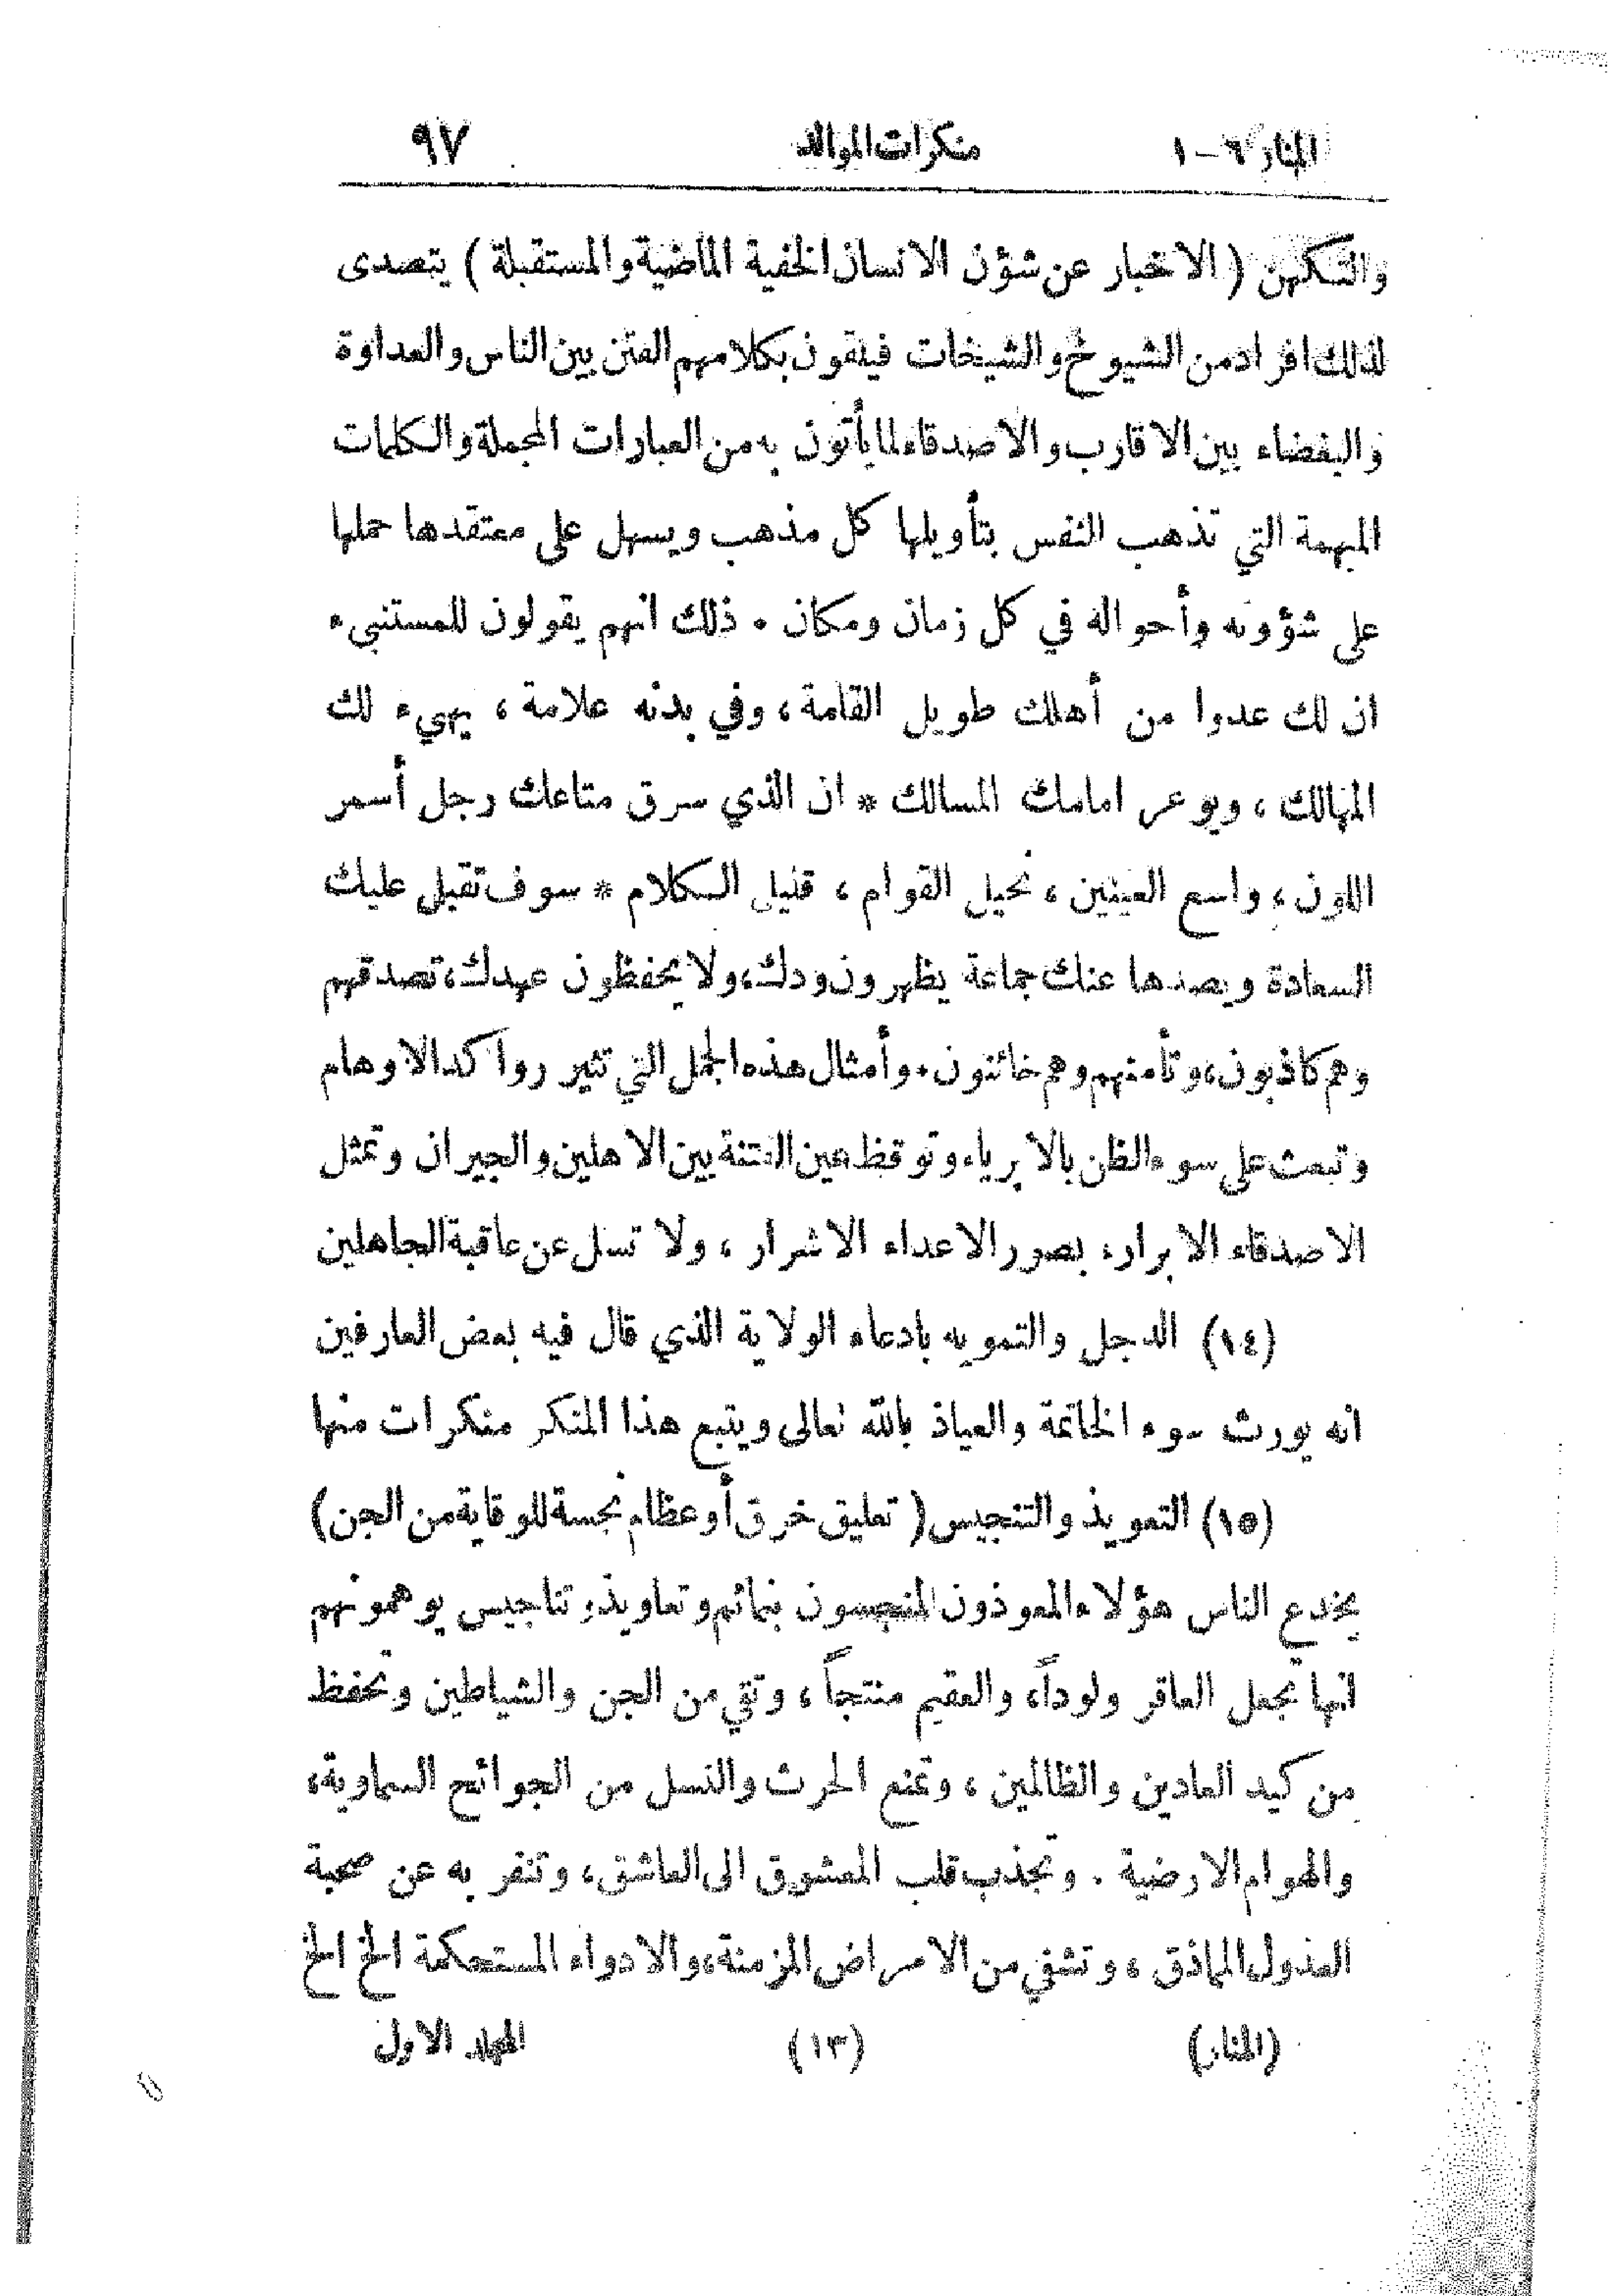 المنار ٦-١ منكرات الموالد ٩٧
والتكهن (الاخبار عن شؤن الانسان الخفية الماضية والمستقبلة) يتصدى
لذلك افراد من الشيوخ والشيخات فيلقون بكلامهم الفتن بين الناس والعداوة
والبغضاء بين الاقارب والاصدقاء لما يأتون به من العبارات المجملة والكلمات
المبهمة التي تذهب النفس بتأويلها كل مذهب ويسهل على معتقدها حملها
على شؤونه وأحواله في كل زمان ومكان . ذلك انهم يقولون للمستنبىء
ان لك عدوا من أهلك طويل القامة ، وفي بدنه علامة ، يهيء لك
المهالك ، ويوعر امامك المسالك * ان الذي سرق متاعك رجل أسمر
اللون ، واسع العينين ، نحيل القوام ، قليل الكلام * سوف تقبل عليك
السعادة ويصدها عنك جماعة يظهرون ودك ، ولا يحفظون عهدك ، تصدقهم
وهم كاذبون ، وتأمنهم وهم خائنون . وأمثال هذه الجمل التي تثير رواكد الاوهام
وتبعث على سوء الظن بالابرياء وتوقظ عين الفتنة بين الاهلين والجيران وتمثل
الاصدقاء الابرار ، بصور الاعداء الاشرار ، ولا تسل عن عاقبة الجاهلين
(١٤) الدجل والتمويه بادعاء الولاية الذي قال فيه بعض العارفين
انه يورث سوء الخاتمة والعياذ بالله تعالى ويتبع هذا المنكر منكرات منها
(١٥) التعويذ والتنجيس (تعليق خرق أو عظام نجسة للوقاية من الجن)
يخدع الناس هؤلاء المعوذون المنجسون بتمائم وتعاويذ وتناجيس يوهمونهم
انها تجعل العاقر ولوداً ، والعقيم منتجاً ، وتقي من الجن والشياطين وتحفظ
من كيد العادين والظالمين ، وتمنع الحرث والنسل من الجوائح السماوية ،
والهوام الارضية . وتجذب قلب المعشوق الى العاشق ، وتنفر به عن صحبة
العذول المماذق ، وتشفي من الامراض المزمنة ، والادواء المستحكمة الخ الخ
(المنار) (١٣) المجلد الاول